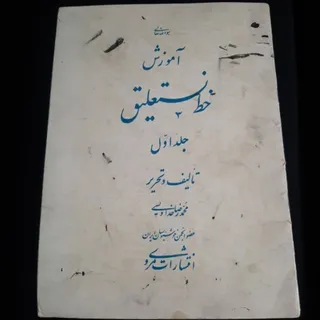 آموزش
خط نستعلیق
جلد اول
تألیف و تحریر
محمدرضا
عضو انجمن خوشنویسان ایران
انتشارات مروی